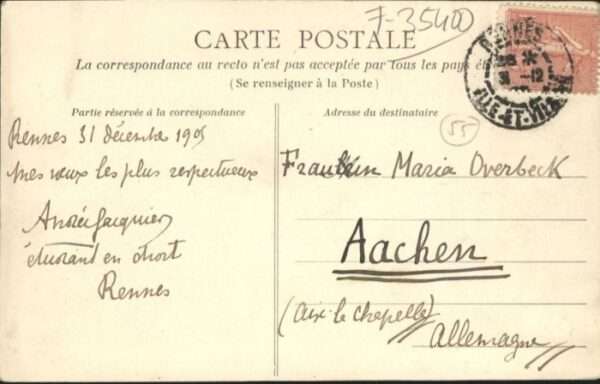 7-35400
CARTE POSTALE
La correspondance au recto n'est pas acceptée par tous les pays
(Se renseigner à la Poste)
Partie réservée à la correspondance
Adresse du destinataire
RENNES
31 -12
ILLE-ET-VILAINE
55
Rennes 31 décembre 1905
Mes vœux les plus respectueux
André Jacquier
étudiant en droit
Rennes
Fraulein Maria Overbeck
Aachen
(Aix-la Chapelle)
Allemagne